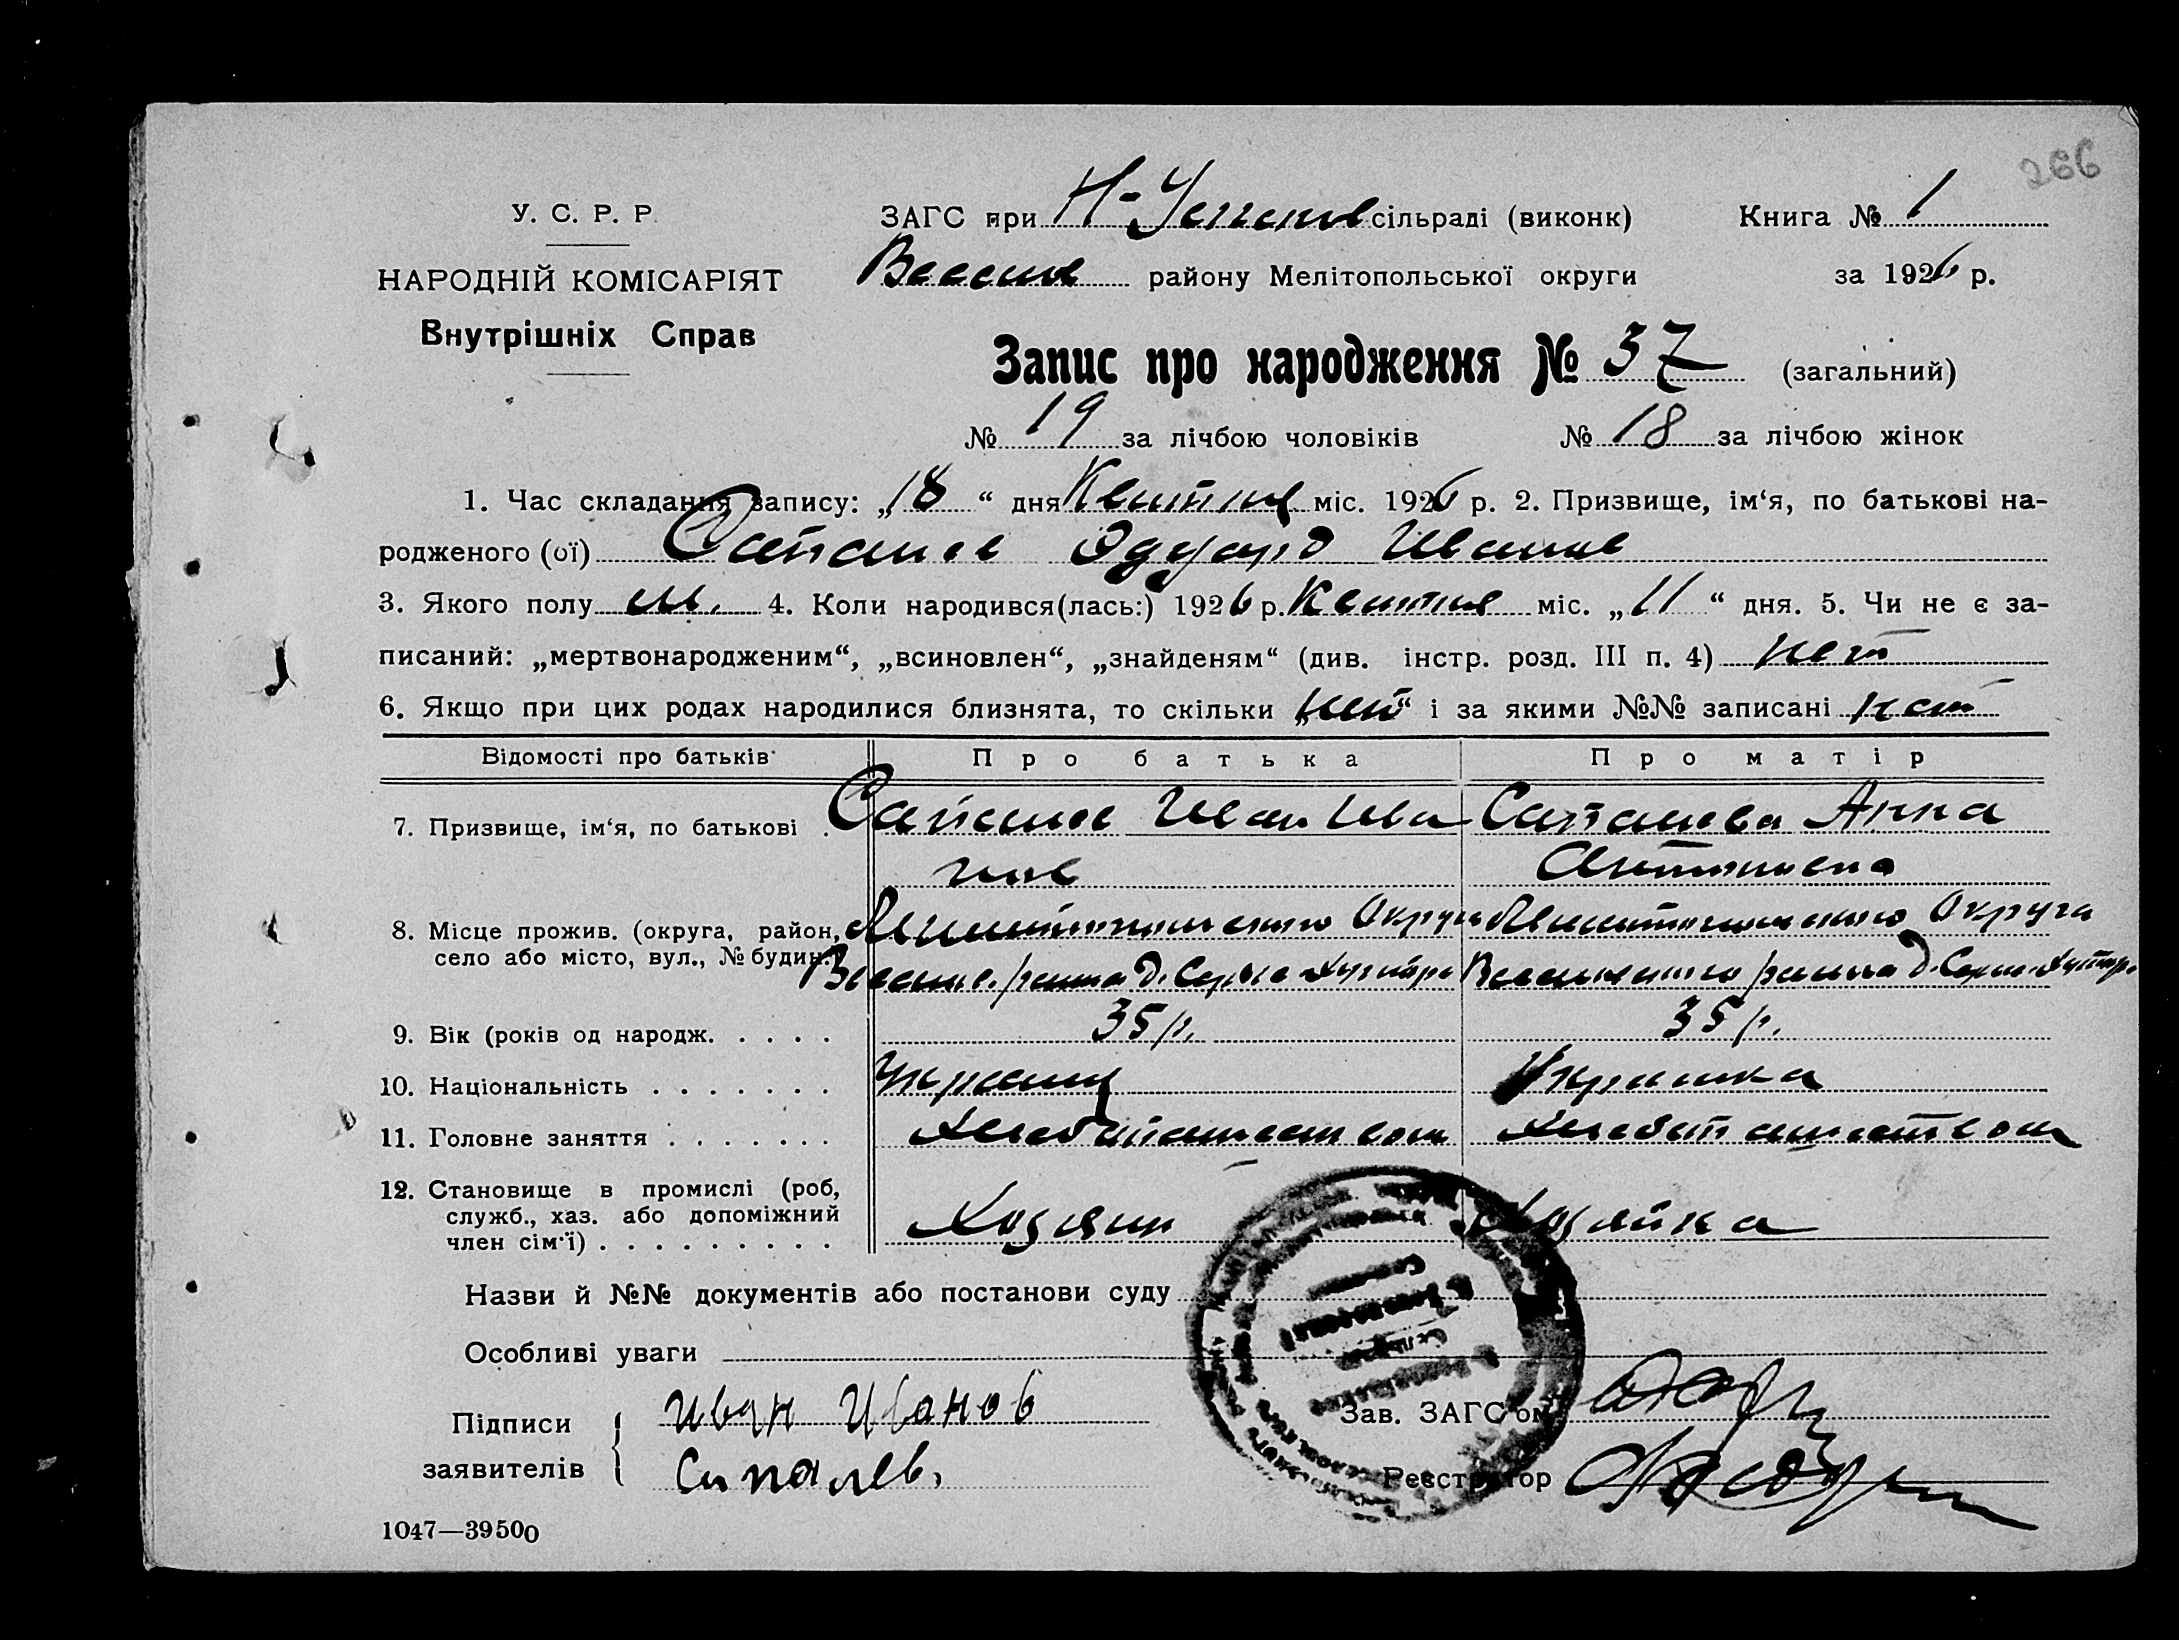 266
У. С. Р. Р.
НАРОДНІЙ КОМІСАРІЯТ
Внутрішніх Справ
ЗАГС при Н-Успенов сільраді (виконк) Книга № 1
Веселов району Мелітопольської округи за 1926 р.
Запис про народження № 37 (загальний)
№ 19 за лічбою чоловіків № 18 за лічбою жінок
1. Час складання запису: „18“ дня міс. 1926 р. 2. Призвище, ім‘я, по батькові на-
родженого (ої) Сапалев Эдуард Иванов
3. Якого полу м. 4. Коли народився(лась:) 1926 р. міс. „11“ дня. 5. Чи не є за-
писаний: „мертвонародженим“, „всиновлен“, „знайденям“ (див. інстр. розд. III п. 4) нет
6. Якщо при цих родах народилися близнята, то скільки „нет“ і за якими №№ записані нет
Відомості про батьків Про батька Про матір
7. Призвище, ім‘я, по батькові . Сапалев Иван Ива Сапалева Анна
нов Антоновна
8. Місце прожив. (округа, район, Мелитопольского Округа Мелитопольского Округа
село або місто, вул., № будин. Веселов. района д. Веселовского района д.
9. Вік (років од народж. . . . . 35 р. 35 р.
10. Національність . . . . . . . Украинец Украинка
11. Головне заняття . . . . . . . Хлебопашеством Хлебопашеством
12. Становище в промислі (роб, служб., хаз. або допоміжний член сім‘ї) . . . . . . . . . Хозяин Хозяйка
Назви й №№ документів або постанови суду
Особливі уваги
Підписи заявителів { Иван Иванов
Сапалев,
Зав. ЗАГС‘ом
Реєстратор
1047—39500